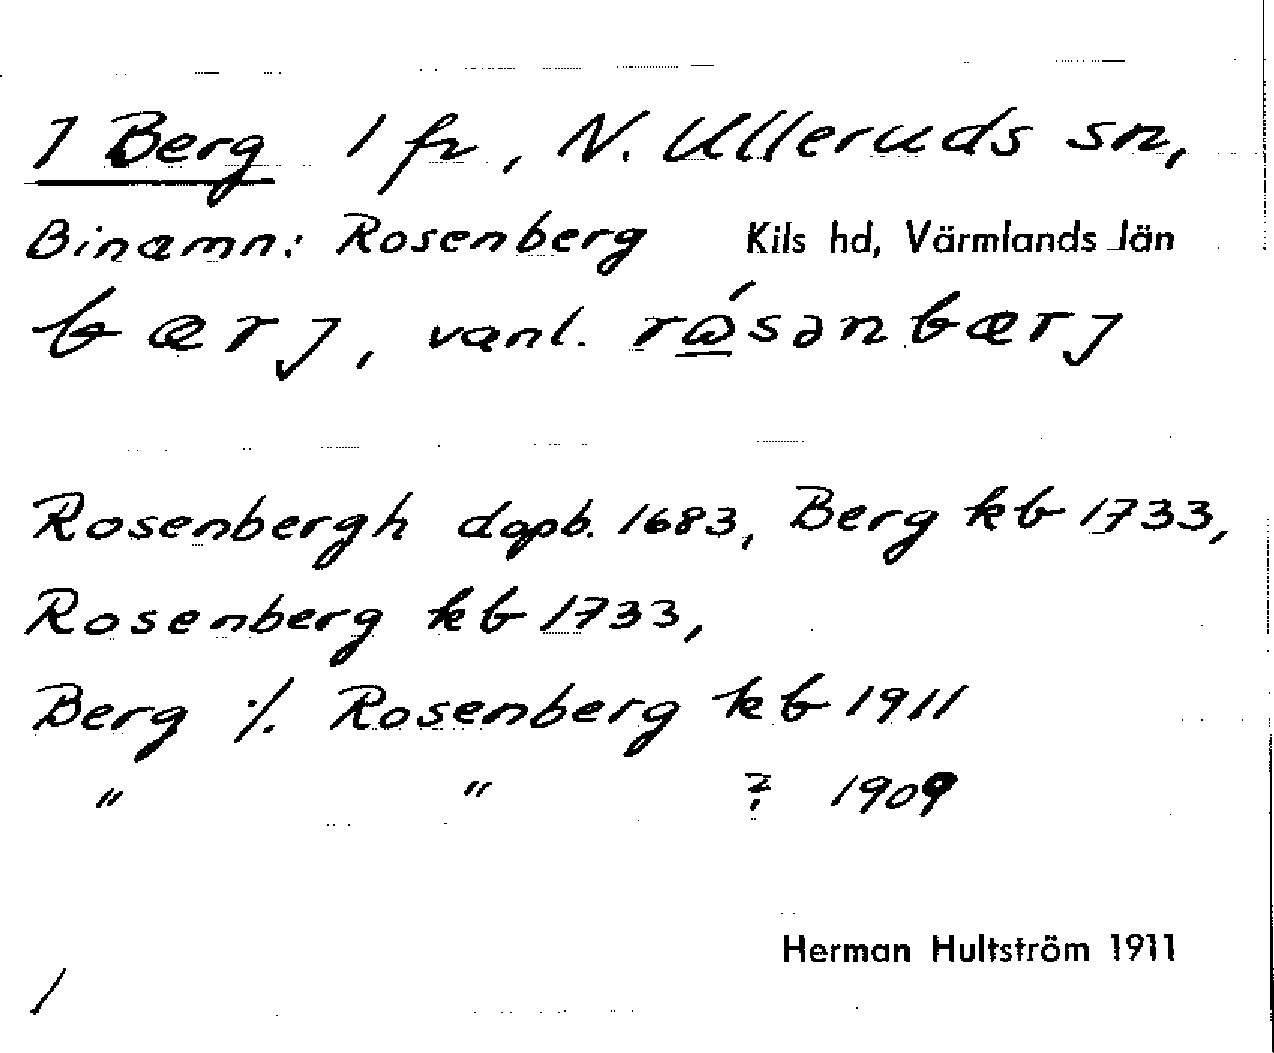 1 Berg 1 fr, N. Ulleruds sn,
Binamn: Rosenberg Kils hd, Värmlands län
bærj, vanl. rósənbærj
Rosenbergh dopb. 1683, Berg kb 1733,
Rosenberg kb 1733,
Berg ·/. Rosenberg kb 1911
" " ? 1909
Herman Hultström 1911
1